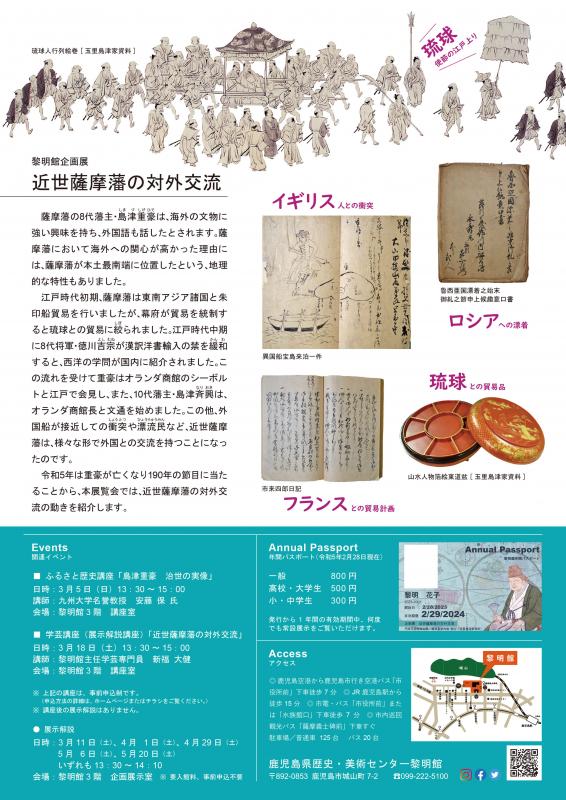 琉球人行列絵巻 [ 玉里島津家資料 ]
琉球
使節の江戸上り
黎明館企画展
近世薩摩藩の対外交流
薩摩藩の8代藩主・島津重豪は、海外の文物に
強い興味を持ち、外国語も話したとされます。薩
摩藩において海外への関心が高かった理由に
は、薩摩藩が本土最南端に位置したという、地理
的な特性もありました。
江戸時代初期、薩摩は東南アジア諸国と朱
印船貿易を行いましたが、幕府が貿易を統制す
ると琉球との貿易に絞られました。江戸時代中期
に8代将軍・徳川吉宗が漢訳洋書輸入の禁を緩和
すると、西洋の学問が国内に紹介されました。こ
の流れを受けて重豪はオランダ商館のシーボル
トと江戸で会見し、また、10代藩主・島津斉興は、
オランダ商館長と文通を始めました。この他、外
国船が接近しての衝突や漂流民など、近世薩摩
藩は、様々な形で外国との交流を持つことになっ
たのです。
令和5年は重豪が亡くなり190年の節目に当
たることから、本展覧会では、近世薩摩藩の対外交
流の動きを紹介します。
イギリス人との衝突
異国船宝島来泊一件
魯西亜国漂着之始末
御札之節申上候趣意口書
ロシアへの漂着
市来四郎日記
フランスとの貿易計画
琉球との貿易品
山水人物箔絵東道盆 [ 玉里島津家資料 ]
Events
関連イベント
■ ふるさと歴史講座「島津重豪 治世の実像」
日時：3月5日（日）13：30 ～ 15：00
講師：九州大学名誉教授 安藤 保 氏
会場：黎明館3階 講座室
■ 学芸講座（展示解説講座）「近世薩摩藩の対外交流」
日時：3月18日（土）13：30 ～ 15：00
講師：黎明館主任学芸専門員 新福 大健
会場：黎明館3階 講座室
※ 上記の講座は、事前申込制です。
（申込方法の詳細は、ホームページまたはチラシをご覧ください。）
※ 講座後の展示解説はありません。
● 展示解説
日時：3月11日（土）、4月 1日（土）、4月29日（土）
5月 6日（土）、5月20日（土）
いずれも 13：30 ～ 14：10
会場：黎明館3階 企画展示室 ※ 要入館料、事前申込不要
Annual Passport
年間パスポート（令和5年2月28日現在）
一般 800 円
高校・大学生 500 円
小・中学生 300 円
発行から1年間の有効期間中、何度
でも常設展示をご覧いただけます。
Annual Passport
黎明 花子
2/28/2023
2/29/2024
Access
アクセス
◎ 鹿児島空港から鹿児島市行き空港バス「市
役所前」下車徒歩7分 ◎ JR鹿児島駅から
徒歩15分 ◎ 市電・バス「市役所前」また
は「水族館口」下車徒歩7分 ◎ 市内巡回
観光バス「薩摩義士碑前」下車すぐ
駐車場／普通車 125台 バス 20台
黎明館
城山
鹿児島県歴史・美術センター黎明館
〒892-0853 鹿児島市城山町 7-2 ☎099-222-5100